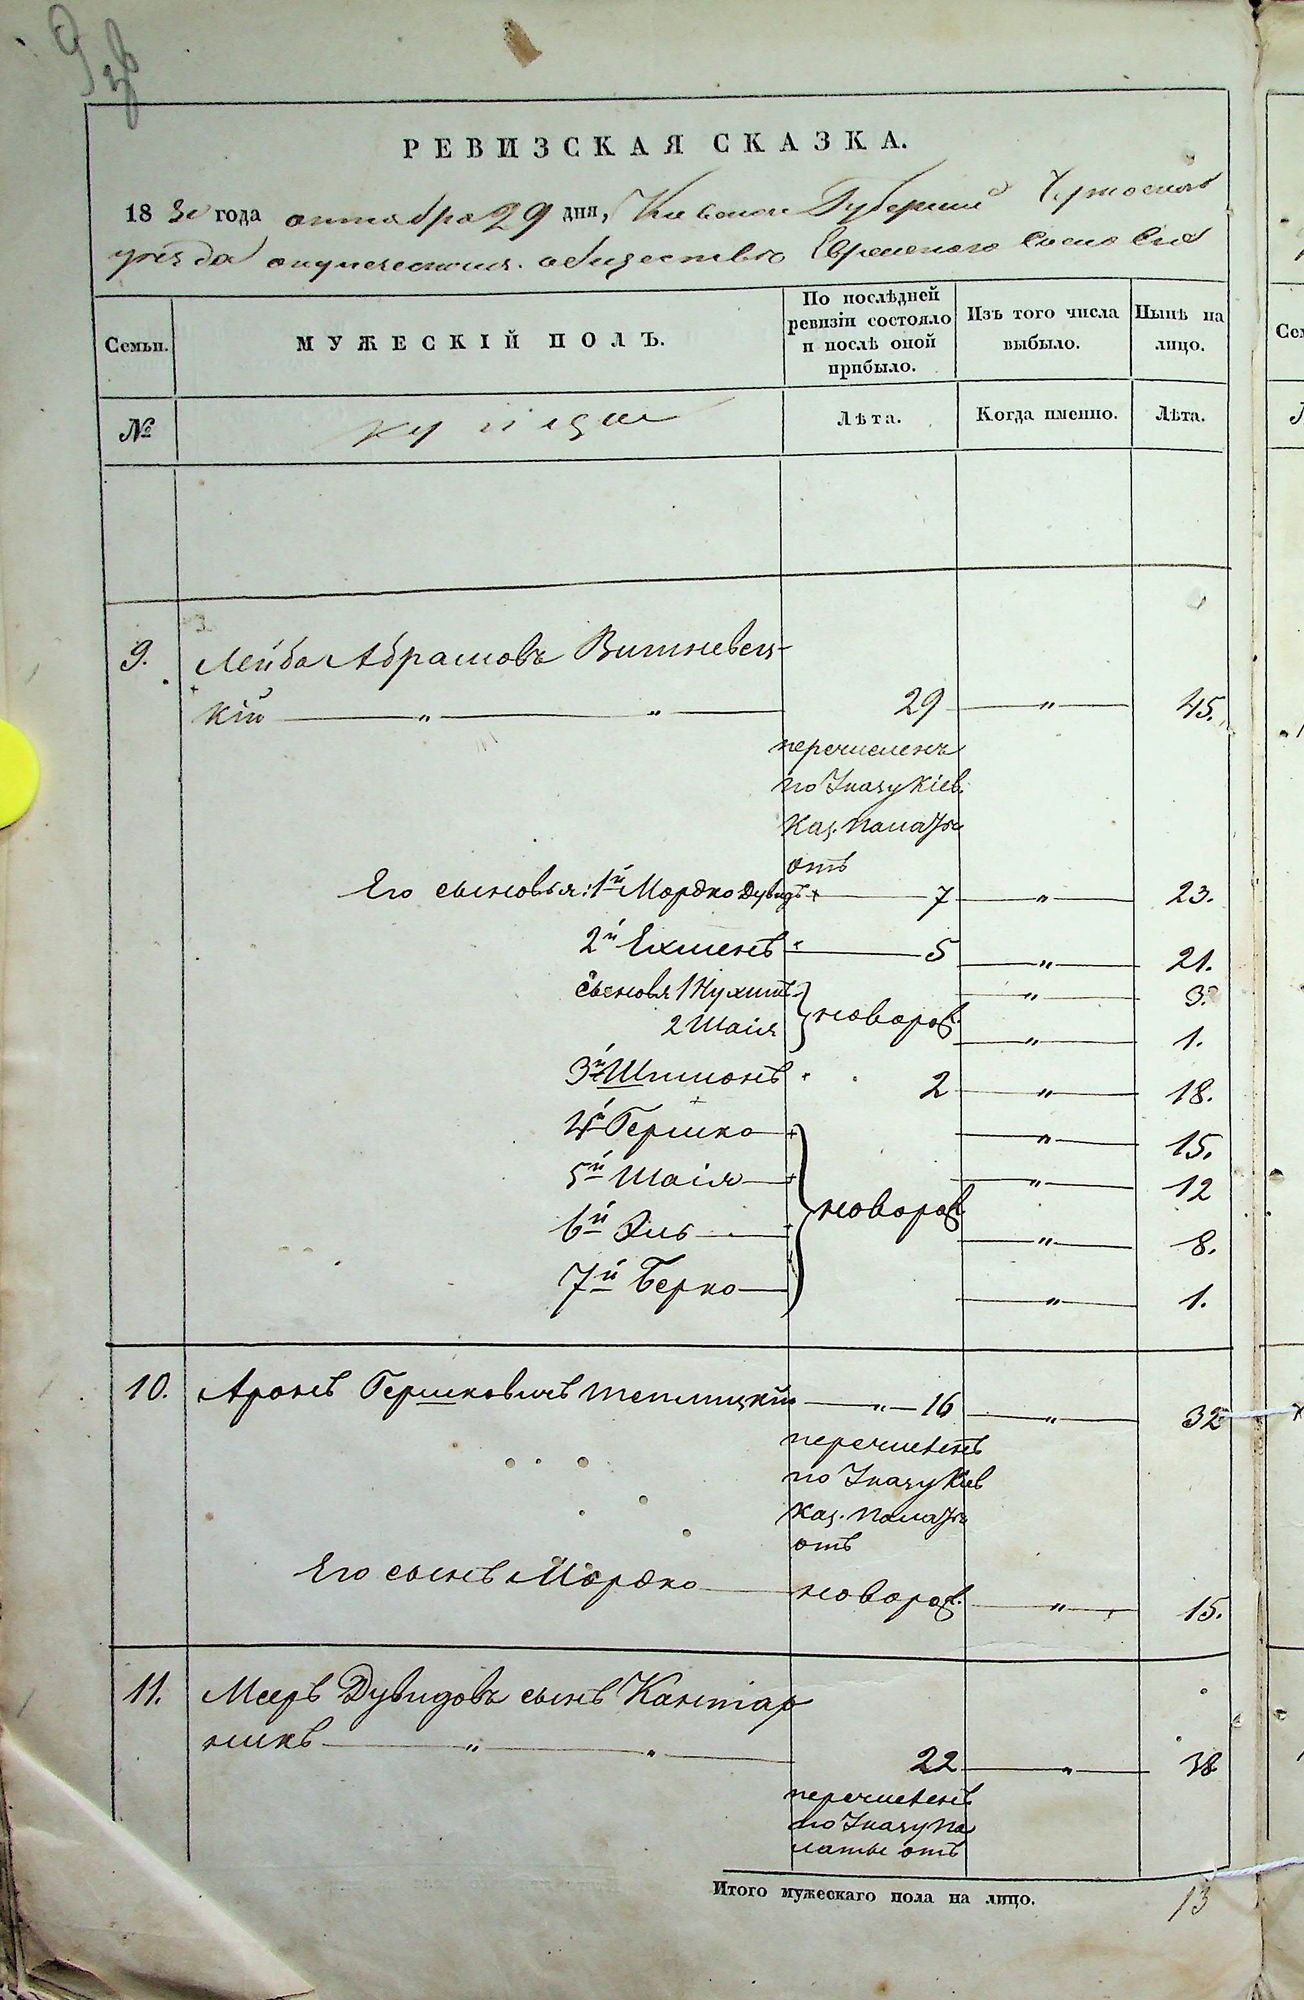 РЕВИЗСКАЯ СКАЗКА.
18 года октября 29 дня, Киевской Губернии
уезда о купеческомъ обществе Еврейского Сословія
Семьи.
МУЖЕСКІЙ ПОЛЪ.
По послѣдней ревизіи состояло и послѣ оной прибыло.
Изъ того числа выбыло.
Нынѣ на лицо.
№
купцы
Лѣта.
Когда именно.
Лѣта.
9. Лейба Абрамовъ Вишневец-
кій — " — " — 29 — " — 45.
перечисленъ
по Указу Кіев.
Каз. Палаты
отъ
Его сыновья: 1й Мордко Дувидъ — 7 — " — 23.
2й Ехиенъ — 5 — " — 21.
Сыновья 1 Нухимъ — " — 3.
новорож.
2 Шаія — " — 1.
3й Шимонъ 2 — " — 18.
4й Гершко — " — 15.
5й Шаія — " — 12
новорож
6й Эль — " — 8.
7й Берко — " — 1.
10. Аронъ Гершковичъ Теплицкій — " — 16 — " — 32
перечисленъ
по Указу Кіев
Каз. Палаты
отъ
Его сынъ Мордко — новорож. — " — 15.
11. Мееръ Дувидовъ сынъ Кантар
никъ — " — " — 22 — " — 38
перечисленъ
по Указу Па
латы отъ
Итого мужескаго пола на лицо. 13